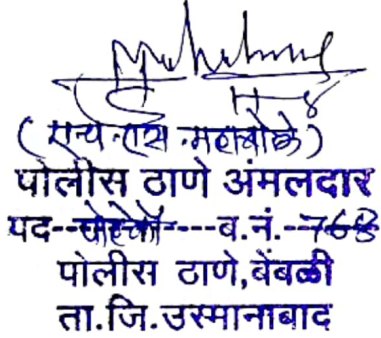 (एच.एस. महाबोले)
पोलीस ठाणे अंमलदार
पद--पोहेकॉ----ब.नं.--768
पोलीस ठाणे,बेंबळी
ता.जि.उस्मानाबाद